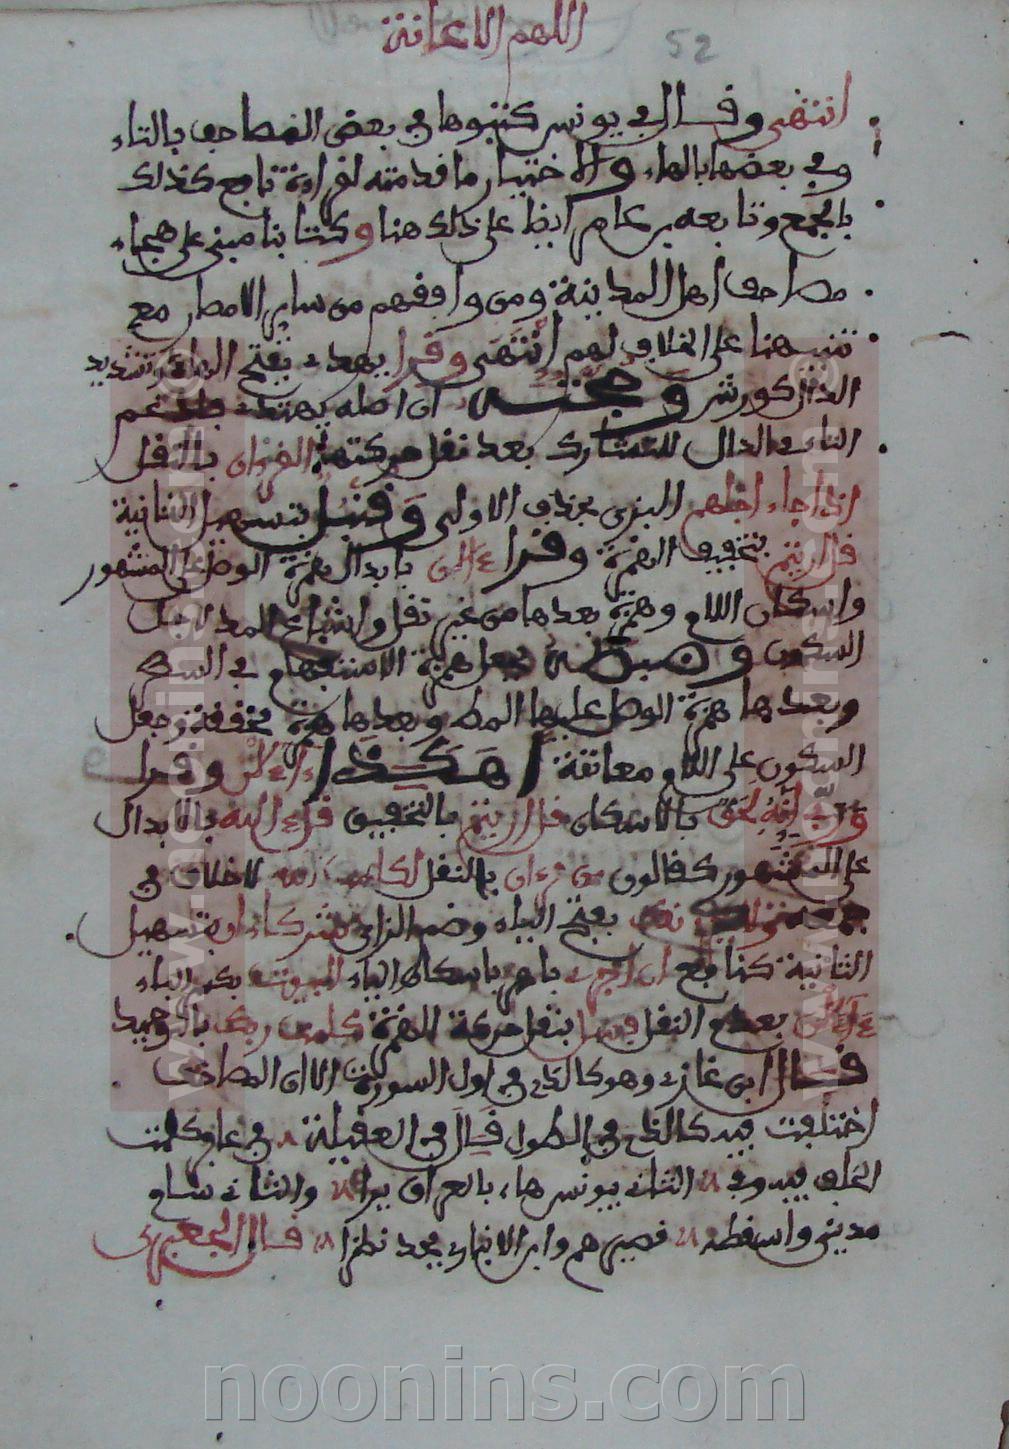 اللهم الاعانة
52
انتهى وقال في يونس كتبوها في بعض المصاحف بالتاء
وفي بعضها بالهاء والاختيار ما قدمته لقراءة نافع كذلك
بالجمع وتابعه بن عامر ايضا على ذلك هنا وكتابنا مبني على هجاء
مصاحف اهل المدينة ومن وافقهم من ساير الامصار مع
تنبيهنا على الخلاف لهم انتهى وقرا يهدي بفتح الهاء وتشديد
الدال كورش وحجته ان اصله يهتدي فادغم
التاء في الدال للتشارك بعد نقل حركتها القرءان بالنقل
اذا جاء اجلهم البزي بحذف الاولى وقنبل بتسهيل الثانية
قل ارءيتم بتخفيف الهمزة وقرا ءالن بابدال همزة الوصل على المشهور
واسكان اللام وهمزة بعدها من غير نقل واشباع المد لاجل
السكون وضبطه بجعل همزة الاستفهام في السطر
وبعدها همزة الوصل عليها المط وبعدها همزة مخففة وجعل
السكون على اللام معانقة هكذا ءالن وقرا
وربي انه لحق بالاسكان قل ارءيتم بالتخفيف قل ءالله بالابدال
على المشهور كقالون من قرءان بالنقل لا خلاف في
بفتح الياء وضم الزاي شركاء ان بتسهيل
الثانية كنافع ان اجري باسكان الياء البيوت بكسر الباء
ءالن بعدم النقل بنقل حركة الهمزة كلمت ربك بالتوحيد
قال ابن غازي وهو كالذي في اول السورة الا ان المصاحف
اختلفت فيه كالذي في الطول قال في العقيلة في غافر كلمت
الخلف فيه وفي الثاني بيونس هاء بالعراق يرا والتاء شام
مديني واسقطه نصيرهم وابن الانباري فجد نظرا قال الجعبري
noonins.com
www.noonins.com
www.noonins.com